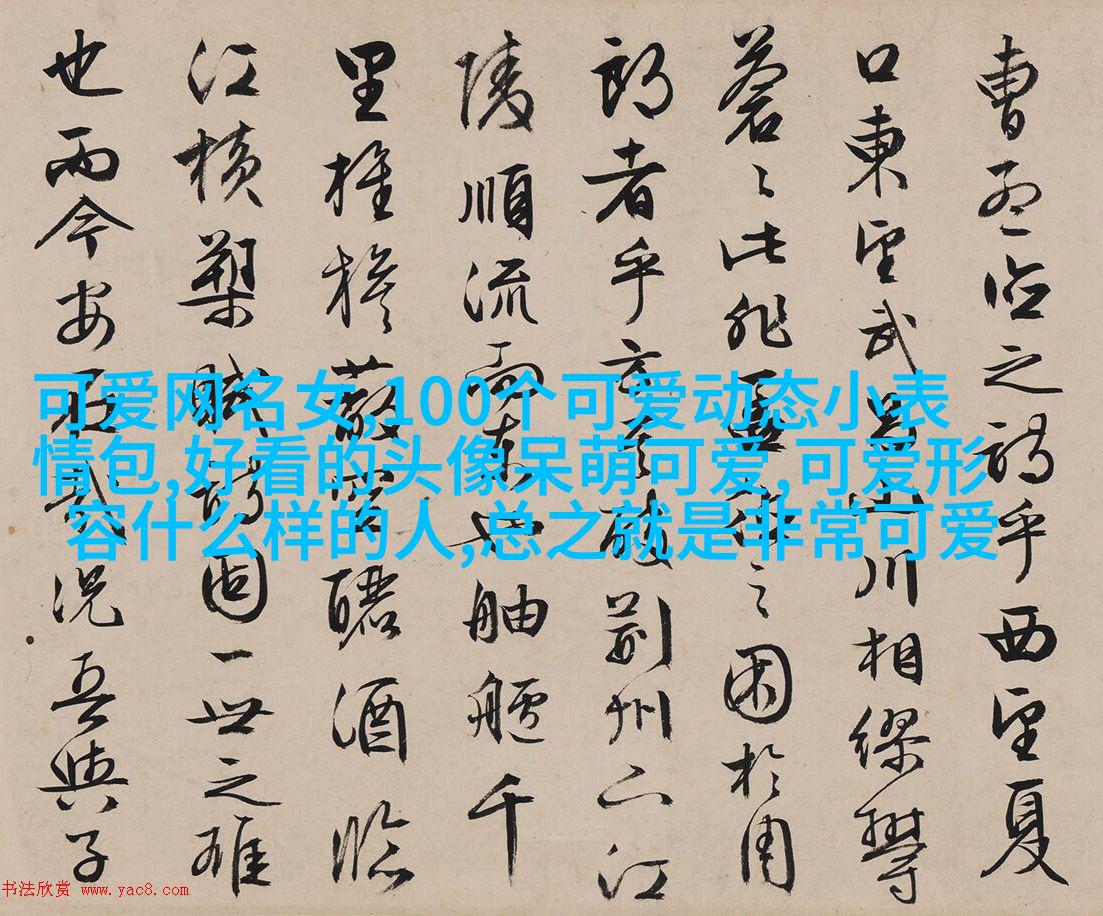 曹孟德之詩乎西望夏
口東望武昌山川相繆鬱
蒼〻此非孟德之困於周
郎者乎方其破荊州下江
陵順流而東也舳艫千
里旌旗蔽空釃酒臨
江橫槊賦詩固一世之雄
也而今安在哉況吾與子
可爱网名女,100个可爱动态小表
情包,好看的头像呆萌可爱,可爱形
容什么样的人,总之就是非常可爱
书法欣赏 www.yac8.com